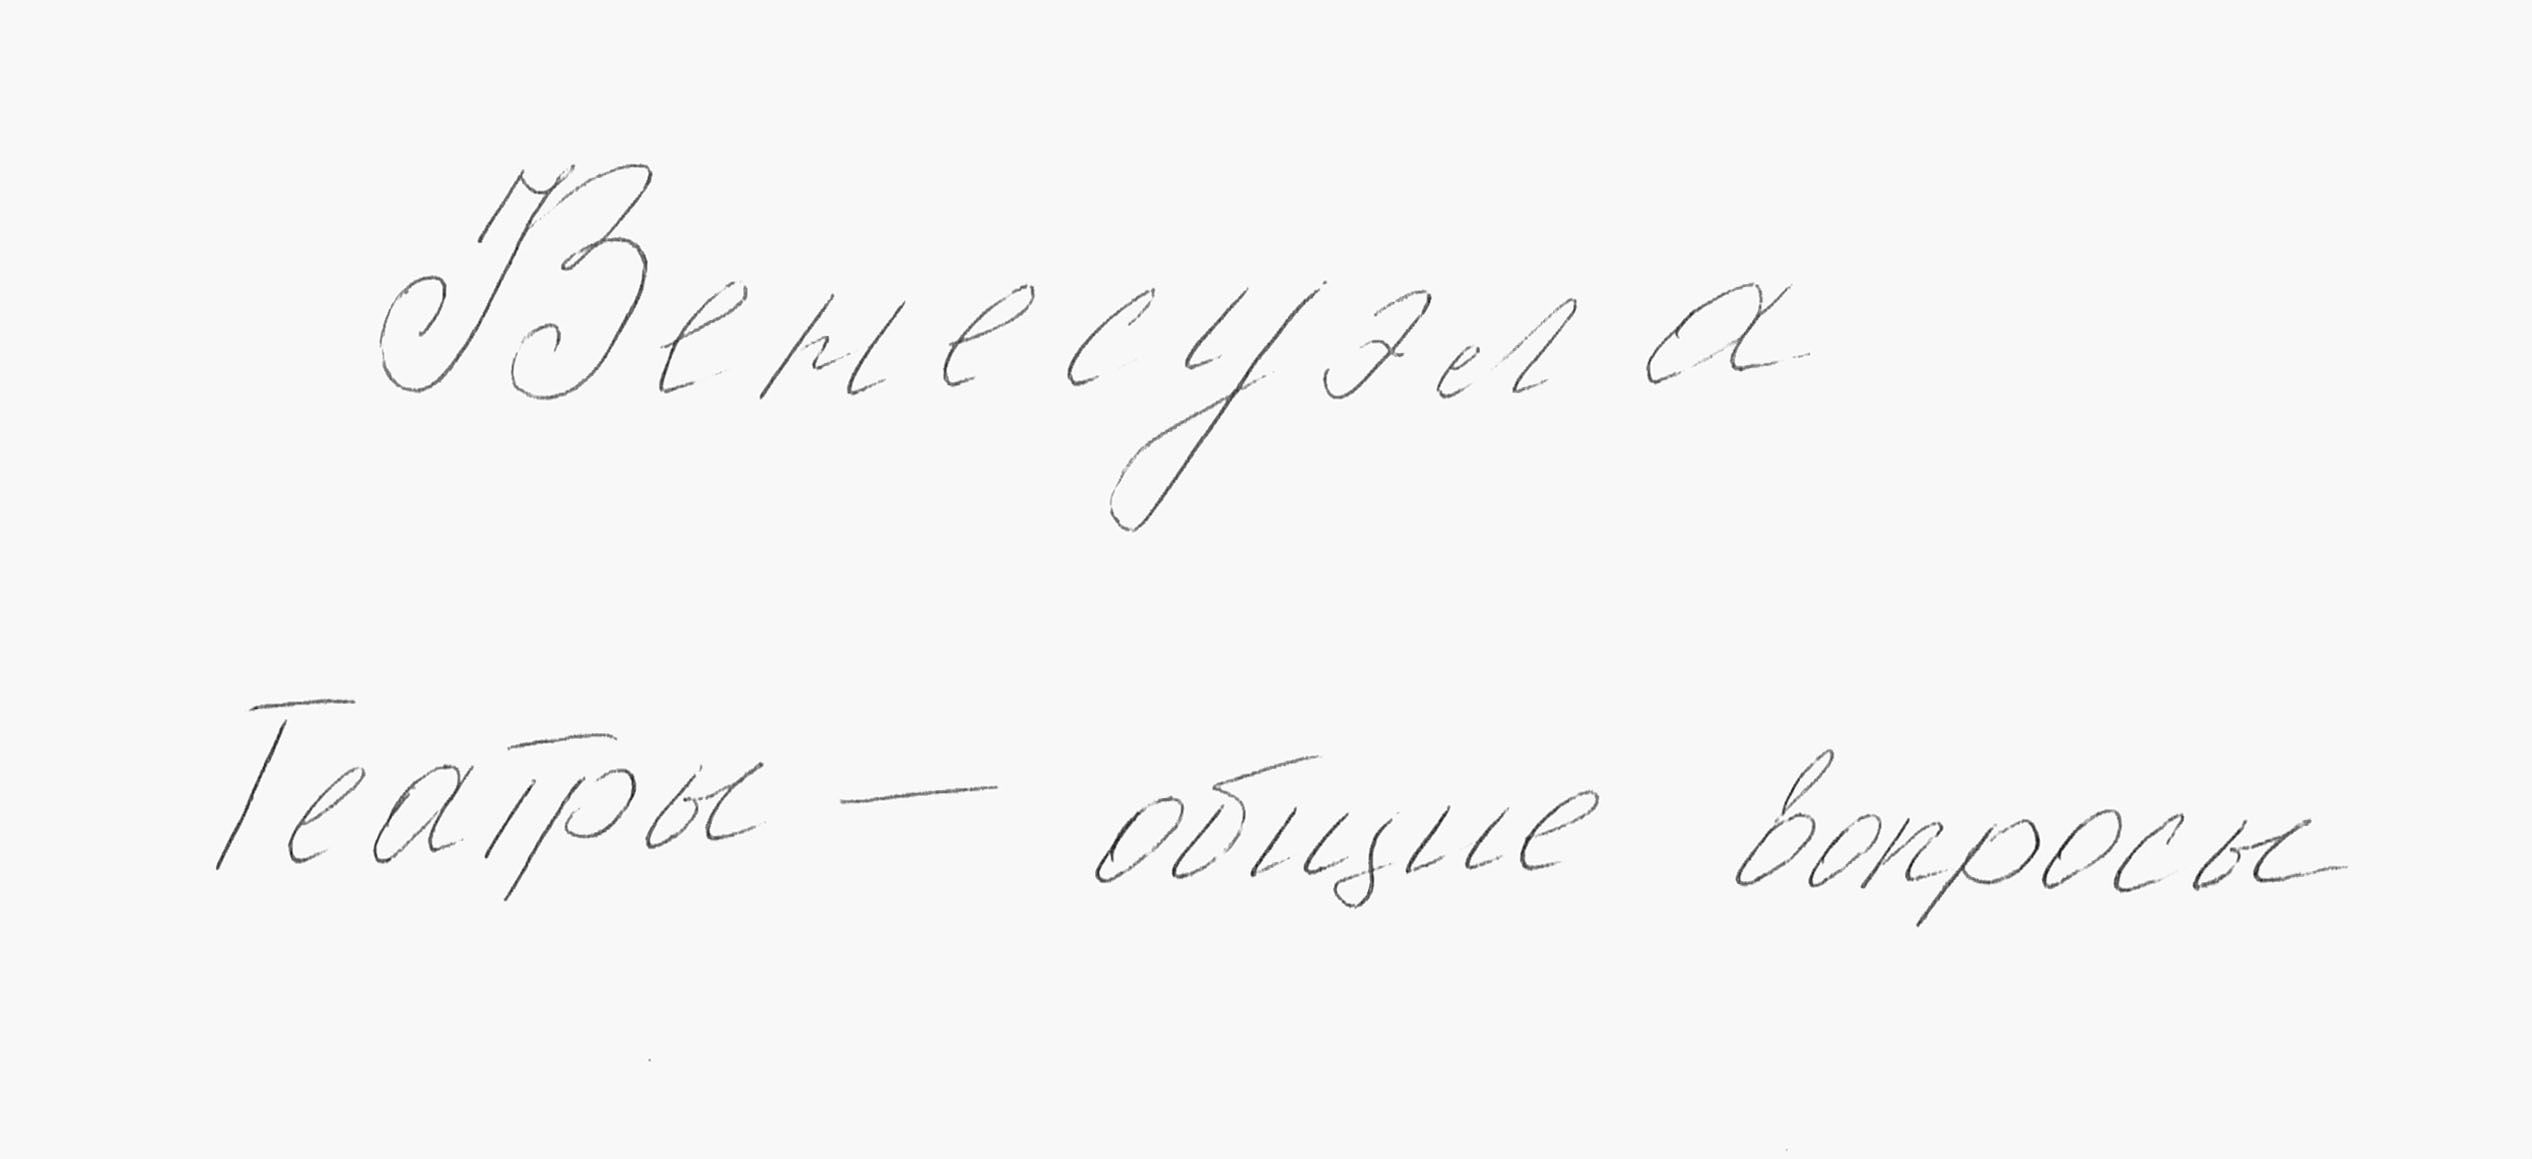 Венесуэла
Театры — общие вопросы